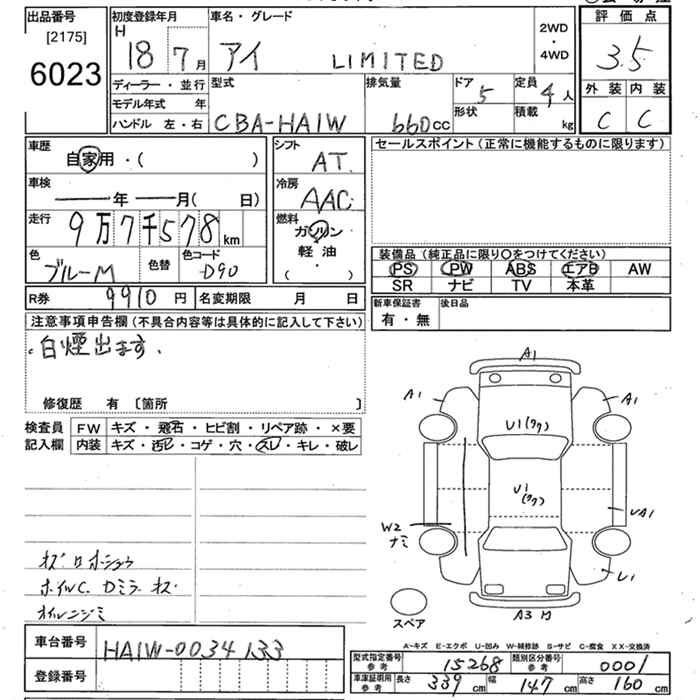 出品番号
[2175]
6023
初度登録年月
H 18 7 月
車名・グレード
アイ LIMITED
2WD
・
4WD
評価点
3.5
外装 内装
C C
ディーラー・並行
モデル年式 年
ハンドル 左・右
型式
CBA-HA1W
排気量
660cc
ドア 5
形状
定員 4人
積載 kg
車歴
自家用・( )
車検
年 月( 日)
走行
9万7千578km
色
ブルーM
色替
色コード
D90
シフト
AT
冷房
AAC
燃料
ガソリン
軽油
( ・ )
セールスポイント(正常に機能するものに限ります)
装備品(純正品に限り○をつけてください)
PS PW ABS エアB AW
SR ナビ TV 本革
R券 9910円 名変期限 月 日
新車保証書
有・無
後日品
注意事項申告欄(不具合内容等は具体的に記入して下さい)
白煙出ます.
修復歴 有 〔箇所 〕
検査員
記入欄
FW キズ・飛石・ヒビ割・リペア跡・×要
内装 キズ・汚レ・コゲ・穴・スレ・キレ・破レ
ホイルC. Dミラーキズ
オイルニジミ
A1
A1
A1
U1(ワク)
U1
(ワク)
UA1
W2
ナミ
U1
A3
スペア
車台番号 HA1W-0034133
登録番号
A-キズ E-エクボ U-凹み W-補修跡 S-サビ C-腐食 XX-交換済
型式指定番号
参考
15268
類別区分番号
参考
0001
車庫証明用
参考
長さ 339cm 幅 147cm 高さ 160cm